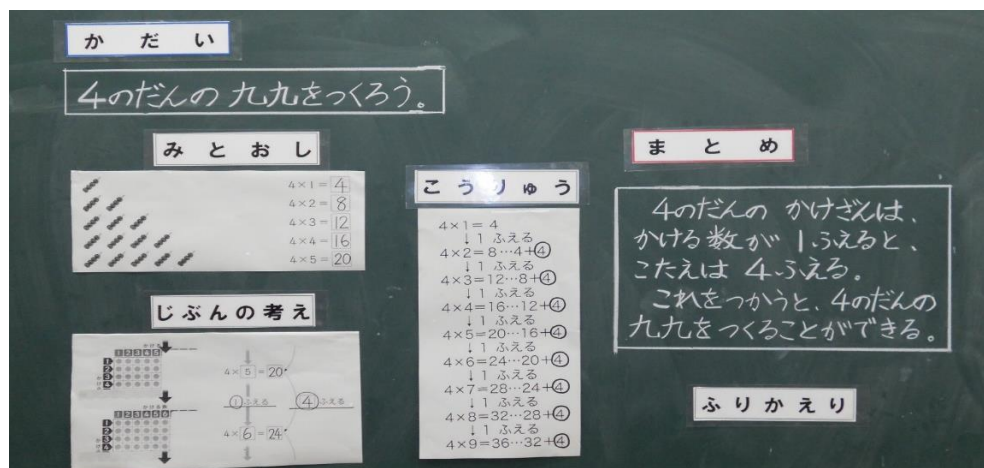 かだい
4のだんの九九をつくろう。
みとおし
4×1=4
4×2=8
4×3=12
4×4=16
4×5=20
じぶんの考え
かける数
1 2 3 4 5
1
2
3
4
4×5=20
1ふえる
4ふえる
かける数
1 2 3 4 5 6
1
2
3
4
4×6=24
こうりゅう
4×1=4
↓1 ふえる
4×2=8…4+④
↓1 ふえる
4×3=12…8+④
↓1 ふえる
4×4=16…12+④
↓1 ふえる
4×5=20…16+④
↓1 ふえる
4×6=24…20+④
↓1 ふえる
4×7=28…24+④
↓1 ふえる
4×8=32…28+④
↓1 ふえる
4×9=36…32+④
まとめ
4のだんの かけざんは、
かける数が 1ふえると、
こたえは 4ふえる。
これをつかうと、4のだんの
九九をつくることができる。
ふりかえり